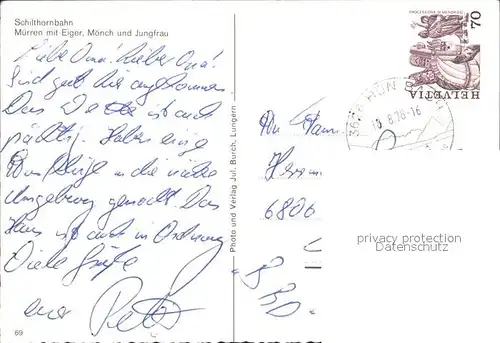 Schilthornbahn
Mürren mit Eiger, Mönch und Jungfrau
Liebe Oma! Lieber Opa!
Sind gut hier angekommen
Das Wetter ist auch
prächtig. Haben einige
Ausflüge in die nähere
Umgebung gemacht. Das
Haus ist auch in Ordnung
Viele Grüße
euer Peter
69
Photo und Verlag Jul. Burch, Lungern
PROCESSIONE DI MENDRISIO
70
HELVETIA
8.78-16
An Fam
Herm
6806
BRD
privacy protection
Datenschutz